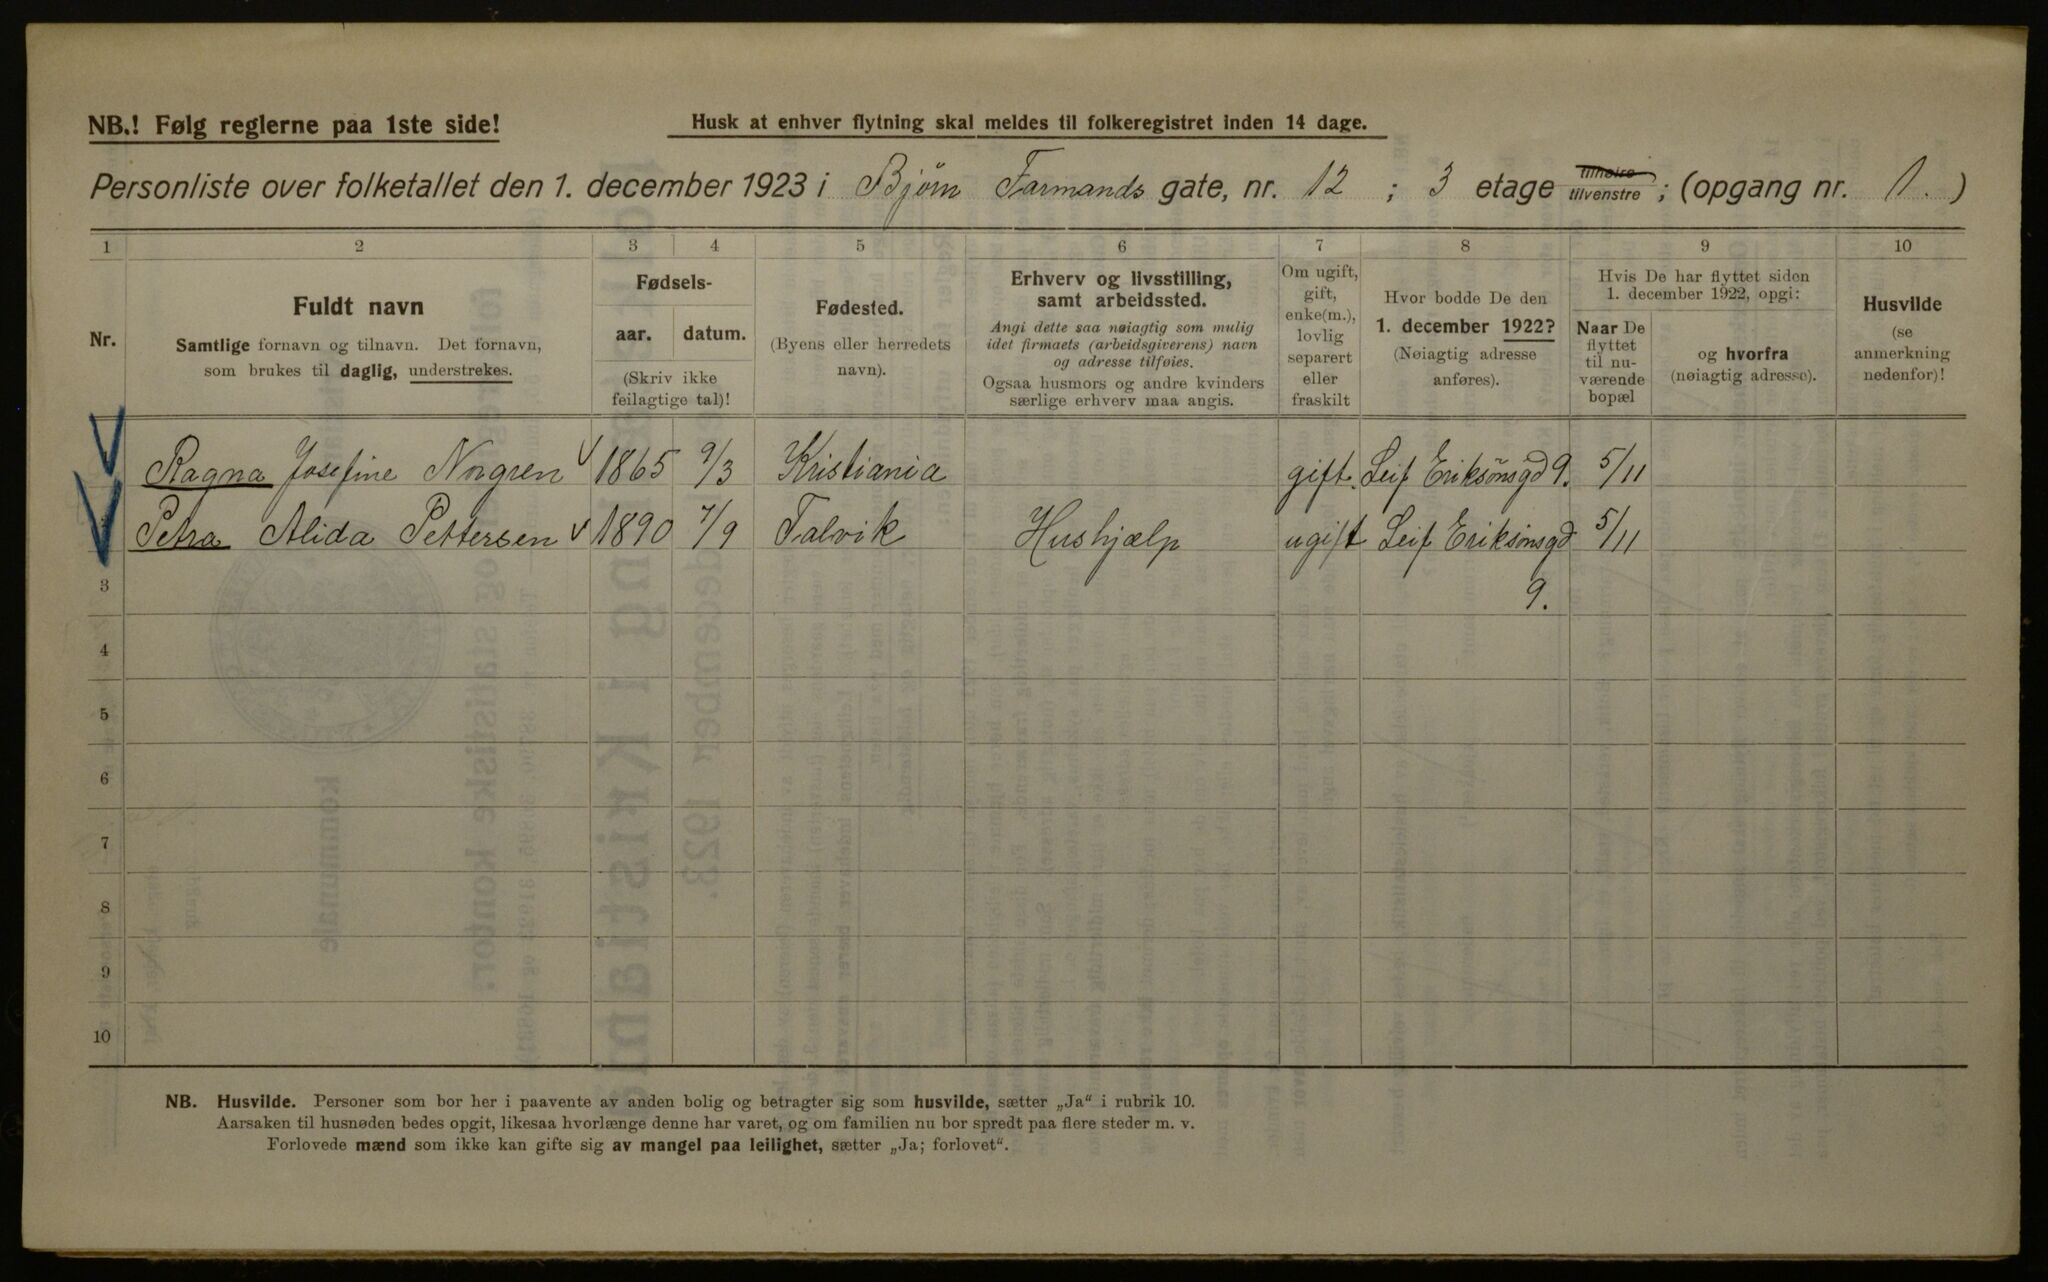 NB.! Følg reglerne paa 1ste side!
Husk at enhver flytning skal meldes til folkeregistret inden 14 dage.
Personliste over folketallet den 1. december 1923 i Bjørn Farmands gate, nr. 12 ; 3 etage tilhøire tilvenstre ; (opgang nr. 1. )
1 2 3 4 5 6 7 8 9 10
Nr.
Fuldt navn
Samtlige fornavn og tilnavn. Det fornavn,
som brukes til daglig, understrekes.
Fødsels-
aar. datum.
(Skriv ikke
feilagtige tal)!
Fødested.
(Byens eller herredets
navn).
Erhverv og livsstilling,
samt arbeidssted.
Angi dette saa nøiagtig som mulig
idet firmaets (arbeidsgiverens) navn
og adresse tilføies.
Ogsaa husmors og andre kvinders
særlige erhverv maa angis.
Om ugift,
gift,
enke(m.),
lovlig
separert
eller
fraskilt
Hvor bodde De den
1. december 1922?
(Nøiagtig adresse
anføres).
Hvis De har flyttet siden
1. december 1922, opgi:
Naar De
flyttet
til nu-
værende
bopæl
og hvorfra
(nøiagtig adresse).
Husvilde
(se
anmerkning
nedenfor)!
Ragna Josefine Norgren 1865 9/3 Kristiania gift. Leif Eriksönsgd 9. 5/11
Petra Alida Pettersen 1890 7/9 Talvik Hushjælp ugift Leif Eriksönsgd 5/11
3 9.
4
5
6
7
8
9
10
NB. Husvilde. Personer som bor her i paavente av anden bolig og betragter sig som husvilde, sætter „Ja“ i rubrik 10.
Aarsaken til husnøden bedes opgit, likesaa hvorlænge denne har varet, og om familien nu bor spredt paa flere steder m. v.
Forlovede mænd som ikke kan gifte sig av mangel paa leilighet, sætter „Ja; forlovet“.